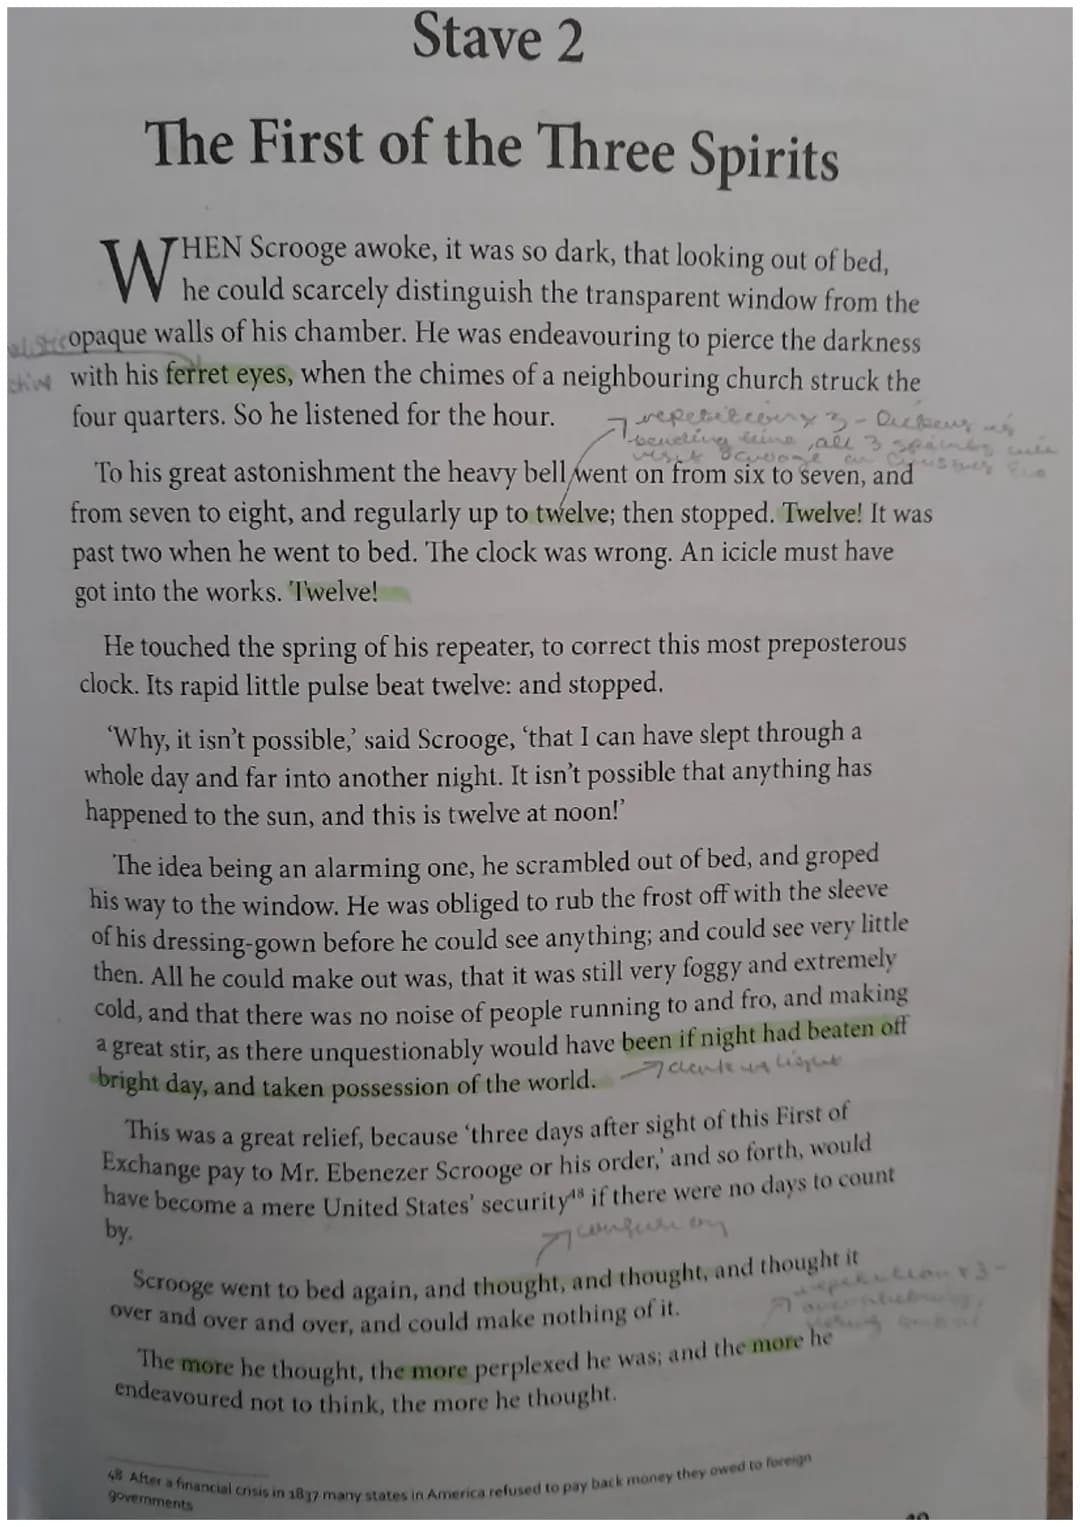 Stave 2
The First of the Three Spirits
WHEN Scrooge awoke, it was so dark, that looking out of bed,
he could scarcely distinguish the transparent window from the
opaque walls of his chamber. He was endeavouring to pierce the darkness
with his ferret eyes, when the chimes of a neighbouring church struck the
four quarters. So he listened for the hour.
repetition x 3 - Dickens is
bending time, all 3 spirits will
visit Scrooge on Christmas Eve
To his great astonishment the heavy bell went on from six to seven, and
from seven to eight, and regularly up to twelve; then stopped. Twelve! It was
past two when he went to bed. The clock was wrong. An icicle must have
got into the works. Twelve!
He touched the spring of his repeater, to correct this most preposterous
clock. Its rapid little pulse beat twelve: and stopped.
‘Why, it isn’t possible,’ said Scrooge, ‘that I can have slept through a
whole day and far into another night. It isn’t possible that anything has
happened to the sun, and this is twelve at noon!’
The idea being an alarming one, he scrambled out of bed, and groped
his way to the window. He was obliged to rub the frost off with the sleeve
of his dressing-gown before he could see anything; and could see very little
then. All he could make out was, that it was still very foggy and extremely
cold, and that there was no noise of people running to and fro, and making
a great stir, as there unquestionably would have been if night had beaten off
bright day, and taken possession of the world.
dark vs light
This was a great relief, because ‘three days after sight of this First of
Exchange pay to Mr. Ebenezer Scrooge or his order,’ and so forth, would
have become a mere United States’ security48 if there were no days to count
by.
confusion
Scrooge went to bed again, and thought, and thought, and thought it
over and over and over, and could make nothing of it.
repetition x3 -
overwhelming,
losing control
The more he thought, the more perplexed he was; and the more he
endeavoured not to think, the more he thought.
48 After a financial crisis in 1837 many states in America refused to pay back money they owed to foreign
governments